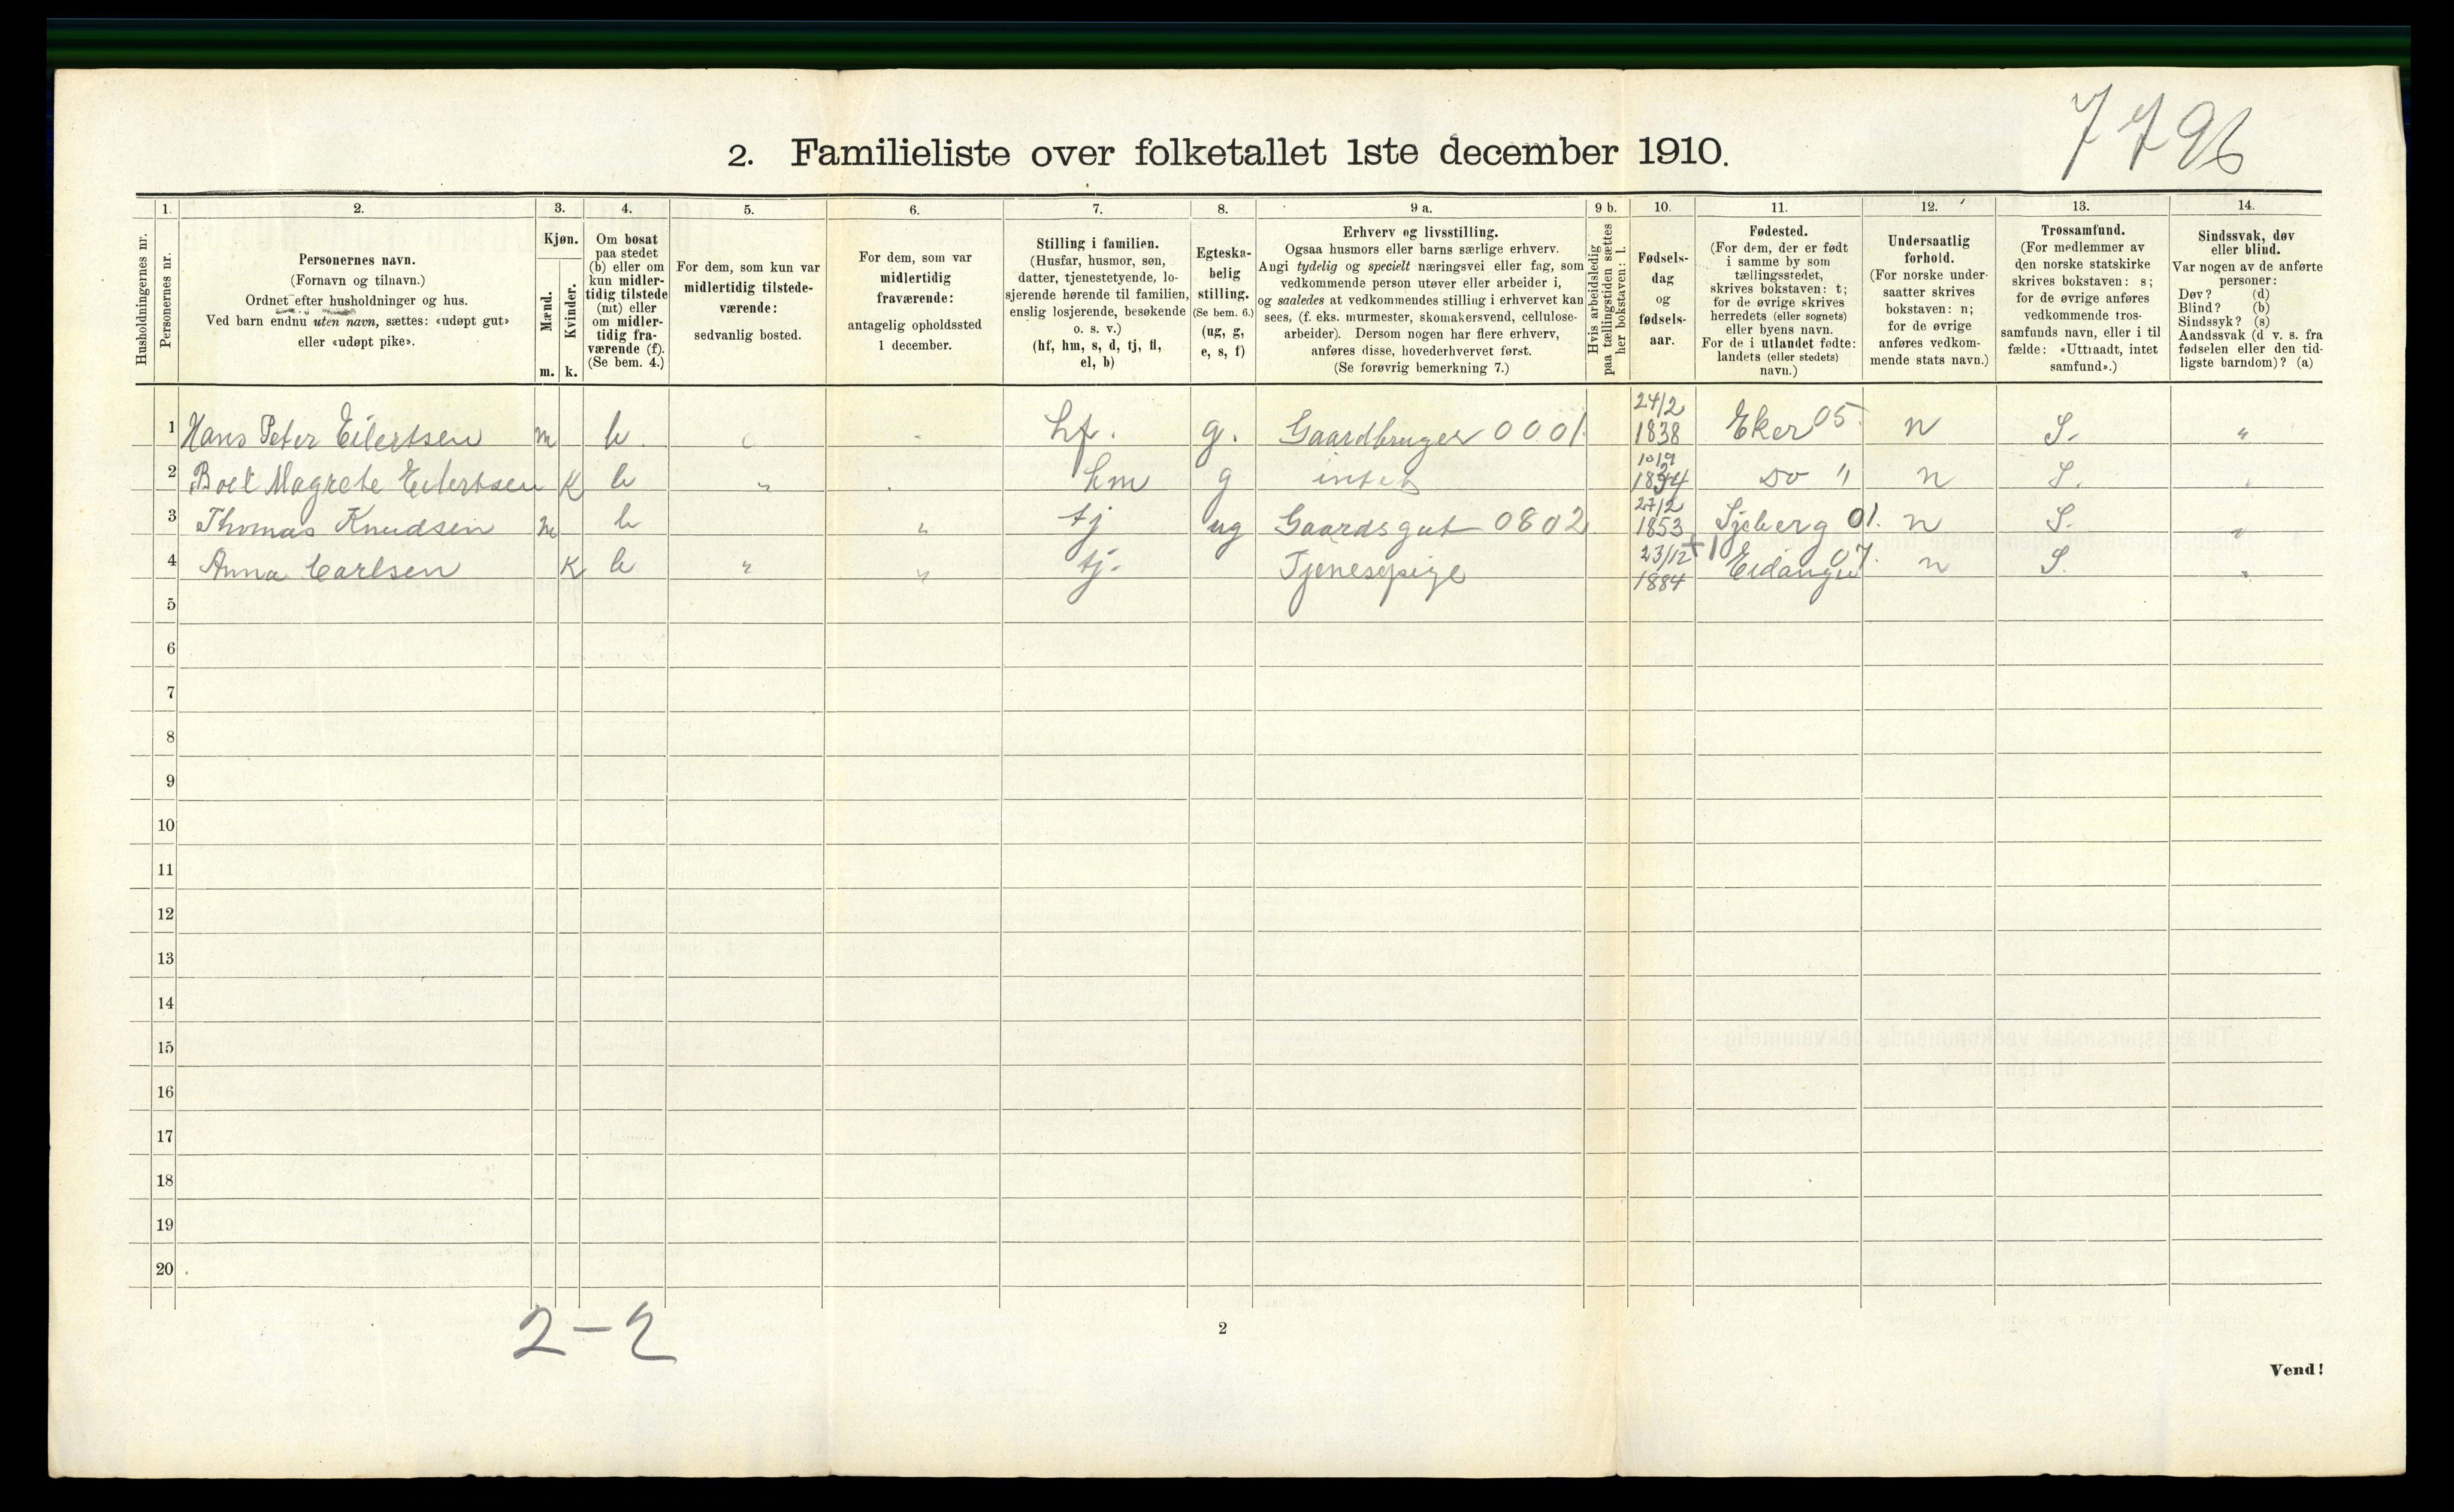 7796
2. Familieliste over folketallet 1ste december 1910.
1. 2. 3. 4. 5. 6. 7. 8. 9 a. 9 b. 10. 11. 12. 13. 14.
Husholdningernes nr.
Personernes nr.
Personernes navn.
(Fornavn og tilnavn.)
Ordnet efter husholdninger og hus.
Ved barn endnu uten navn, sættes: «udøpt gut»
eller «udøpt pike».
Kjøn.
Mænd.
Kvinder.
m. k.
Om bosat
paa stedet
(b) eller om
kun midler-
tidig tilstede
(mt) eller
om midler-
tidig fra-
værende (f).
(Se bem. 4.)
For dem, som kun var
midlertidig tilstede-
værende:
sedvanlig bosted.
For dem, som var
midlertidig
fraværende:
antagelig opholdssted
1 december.
Stilling i familien.
(Husfar, husmor, søn,
datter, tjenestetyende, lo-
sjerende hørende til familien,
enslig losjerende, besøkende
o. s. v.)
(hf, hm, s, d, tj, fl,
el, b)
Egteska-
belig
stilling.
(Se bem. 6.)
(ug, g,
e, s, f)
Erhverv og livsstilling.
Ogsaa husmors eller barns særlige erhverv.
Angi tydelig og specielt næringsvei eller fag, som
vedkommende person utøver eller arbeider i,
og saaledes at vedkommendes stilling i erhvervet kan
sees, (f. eks. murmester, skomakersvend, cellulose-
arbeider). Dersom nogen har flere erhverv,
anføres disse, hovederhvervet først.
(Se forøvrig bemerkning 7.)
Hvis arbeidsledig
paa tællingstiden sættes
her bokstaven: l.
Fødsels-
dag
og
fødsels-
aar.
Fødested.
(For dem, der er født
i samme by som
tællingsstedet,
skrives bokstaven: t;
for de øvrige skrives
herredets (eller sognets)
eller byens navn.
For de i utlandet fødte:
landets (eller stedets)
navn.)
Undersaatlig
forhold.
(For norske under-
saatter skrives
bokstaven: n;
for de øvrige
anføres vedkom-
mende stats navn.)
Trossamfund.
(For medlemmer av
den norske statskirke
skrives bokstaven: s;
for de øvrige anføres
vedkommende tros-
samfunds navn, eller i til
fælde: «Uttraadt, intet
samfund».)
Sindssvak, døv
eller blind.
Var nogen av de anførte
personer:
Døv? (d)
Blind? (b)
Sindssyk? (s)
Aandssvak (d v. s. fra
fødselen eller den tid-
ligste barndom)? (a)
1 Hans Peter Eilertsen m b. hf. g. Gaardbruger 0001 24/2 1838 Eker 05. n S. "
2 Boel Magrete Eilertsen K b " hm g intet 10/9 Do " n S.
3 Thomas Knudsen m b " tj ug Gaardsgut 0802 27/2 1853 01. n S. "
4 Anna Carlsen K b " " tj. Tjenespige 23/12 1884 Eidanger 07. n S. "
5
6
7
8
9
10
11
12
13
14
15
16
17
18
19
20
2-2
2
Vend!